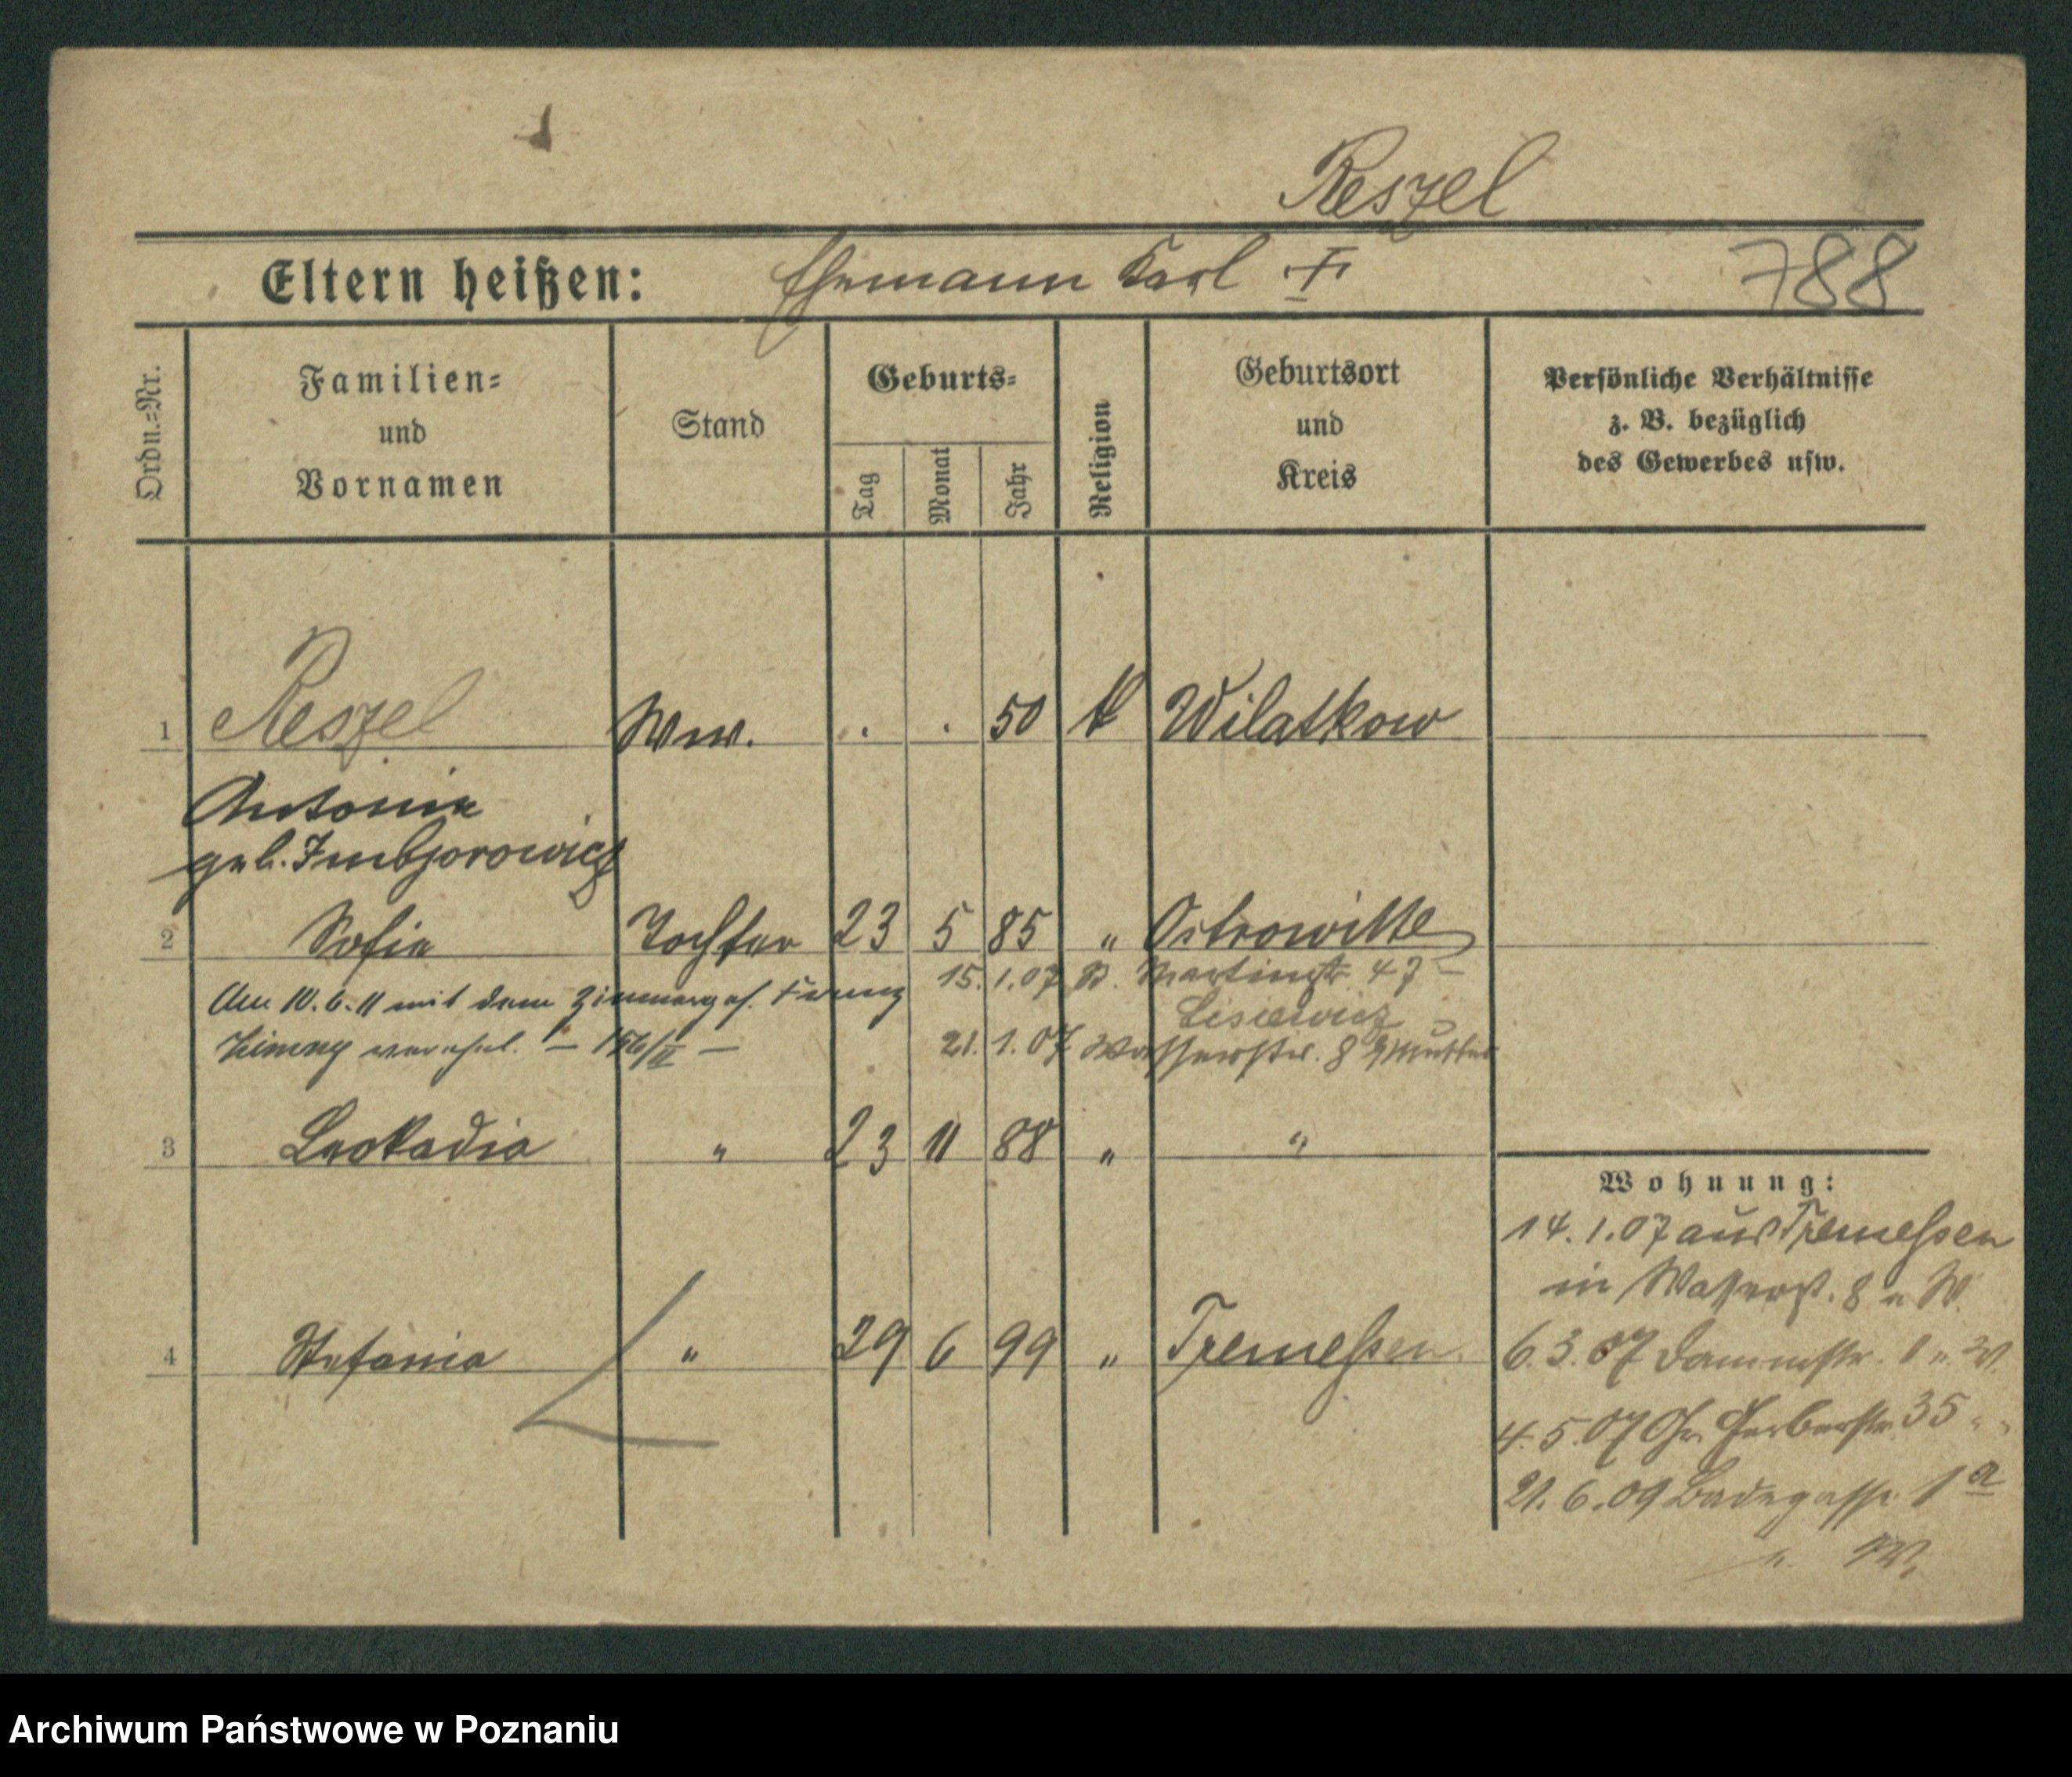 Reszel
Eltern heißen: Ehemann Karl †
788
Ordn.=Nr.
Familien=
und
Vornamen
Stand
Geburts=
Tag
Monat
Jahr
Religion
Geburtsort
und
Kreis
Persönliche Verhältnisse
z. B. bezüglich
des Gewerbes usw.
1 Reszel Ww. . . 50 k Wilatkow
Antonie
geb.
2 Sofie Tochter 23 5 85 " Ostrowitte
15.1.07 B. Martinstr. 47 -
Am 10.6.11 mit dem Zimmerges. Franz
Lisiewicz
verehel. - 156/II -
21.1.07 Wasserstr. 8 z/Mutter
3 Leokadia " 23 11 88 " "
Wohnung:
14.1.07 aus Tremessen
in Wasserst. 8 n W.
4 Stefania " 29 6 99 " Tremessen
6.3.07 Dammstr. 1 n. W.
4.5.07 Gr. Gerberstr. 35 " "
21.6.09 Badegasse 1a
n. W.
Archiwum Państwowe w Poznaniu